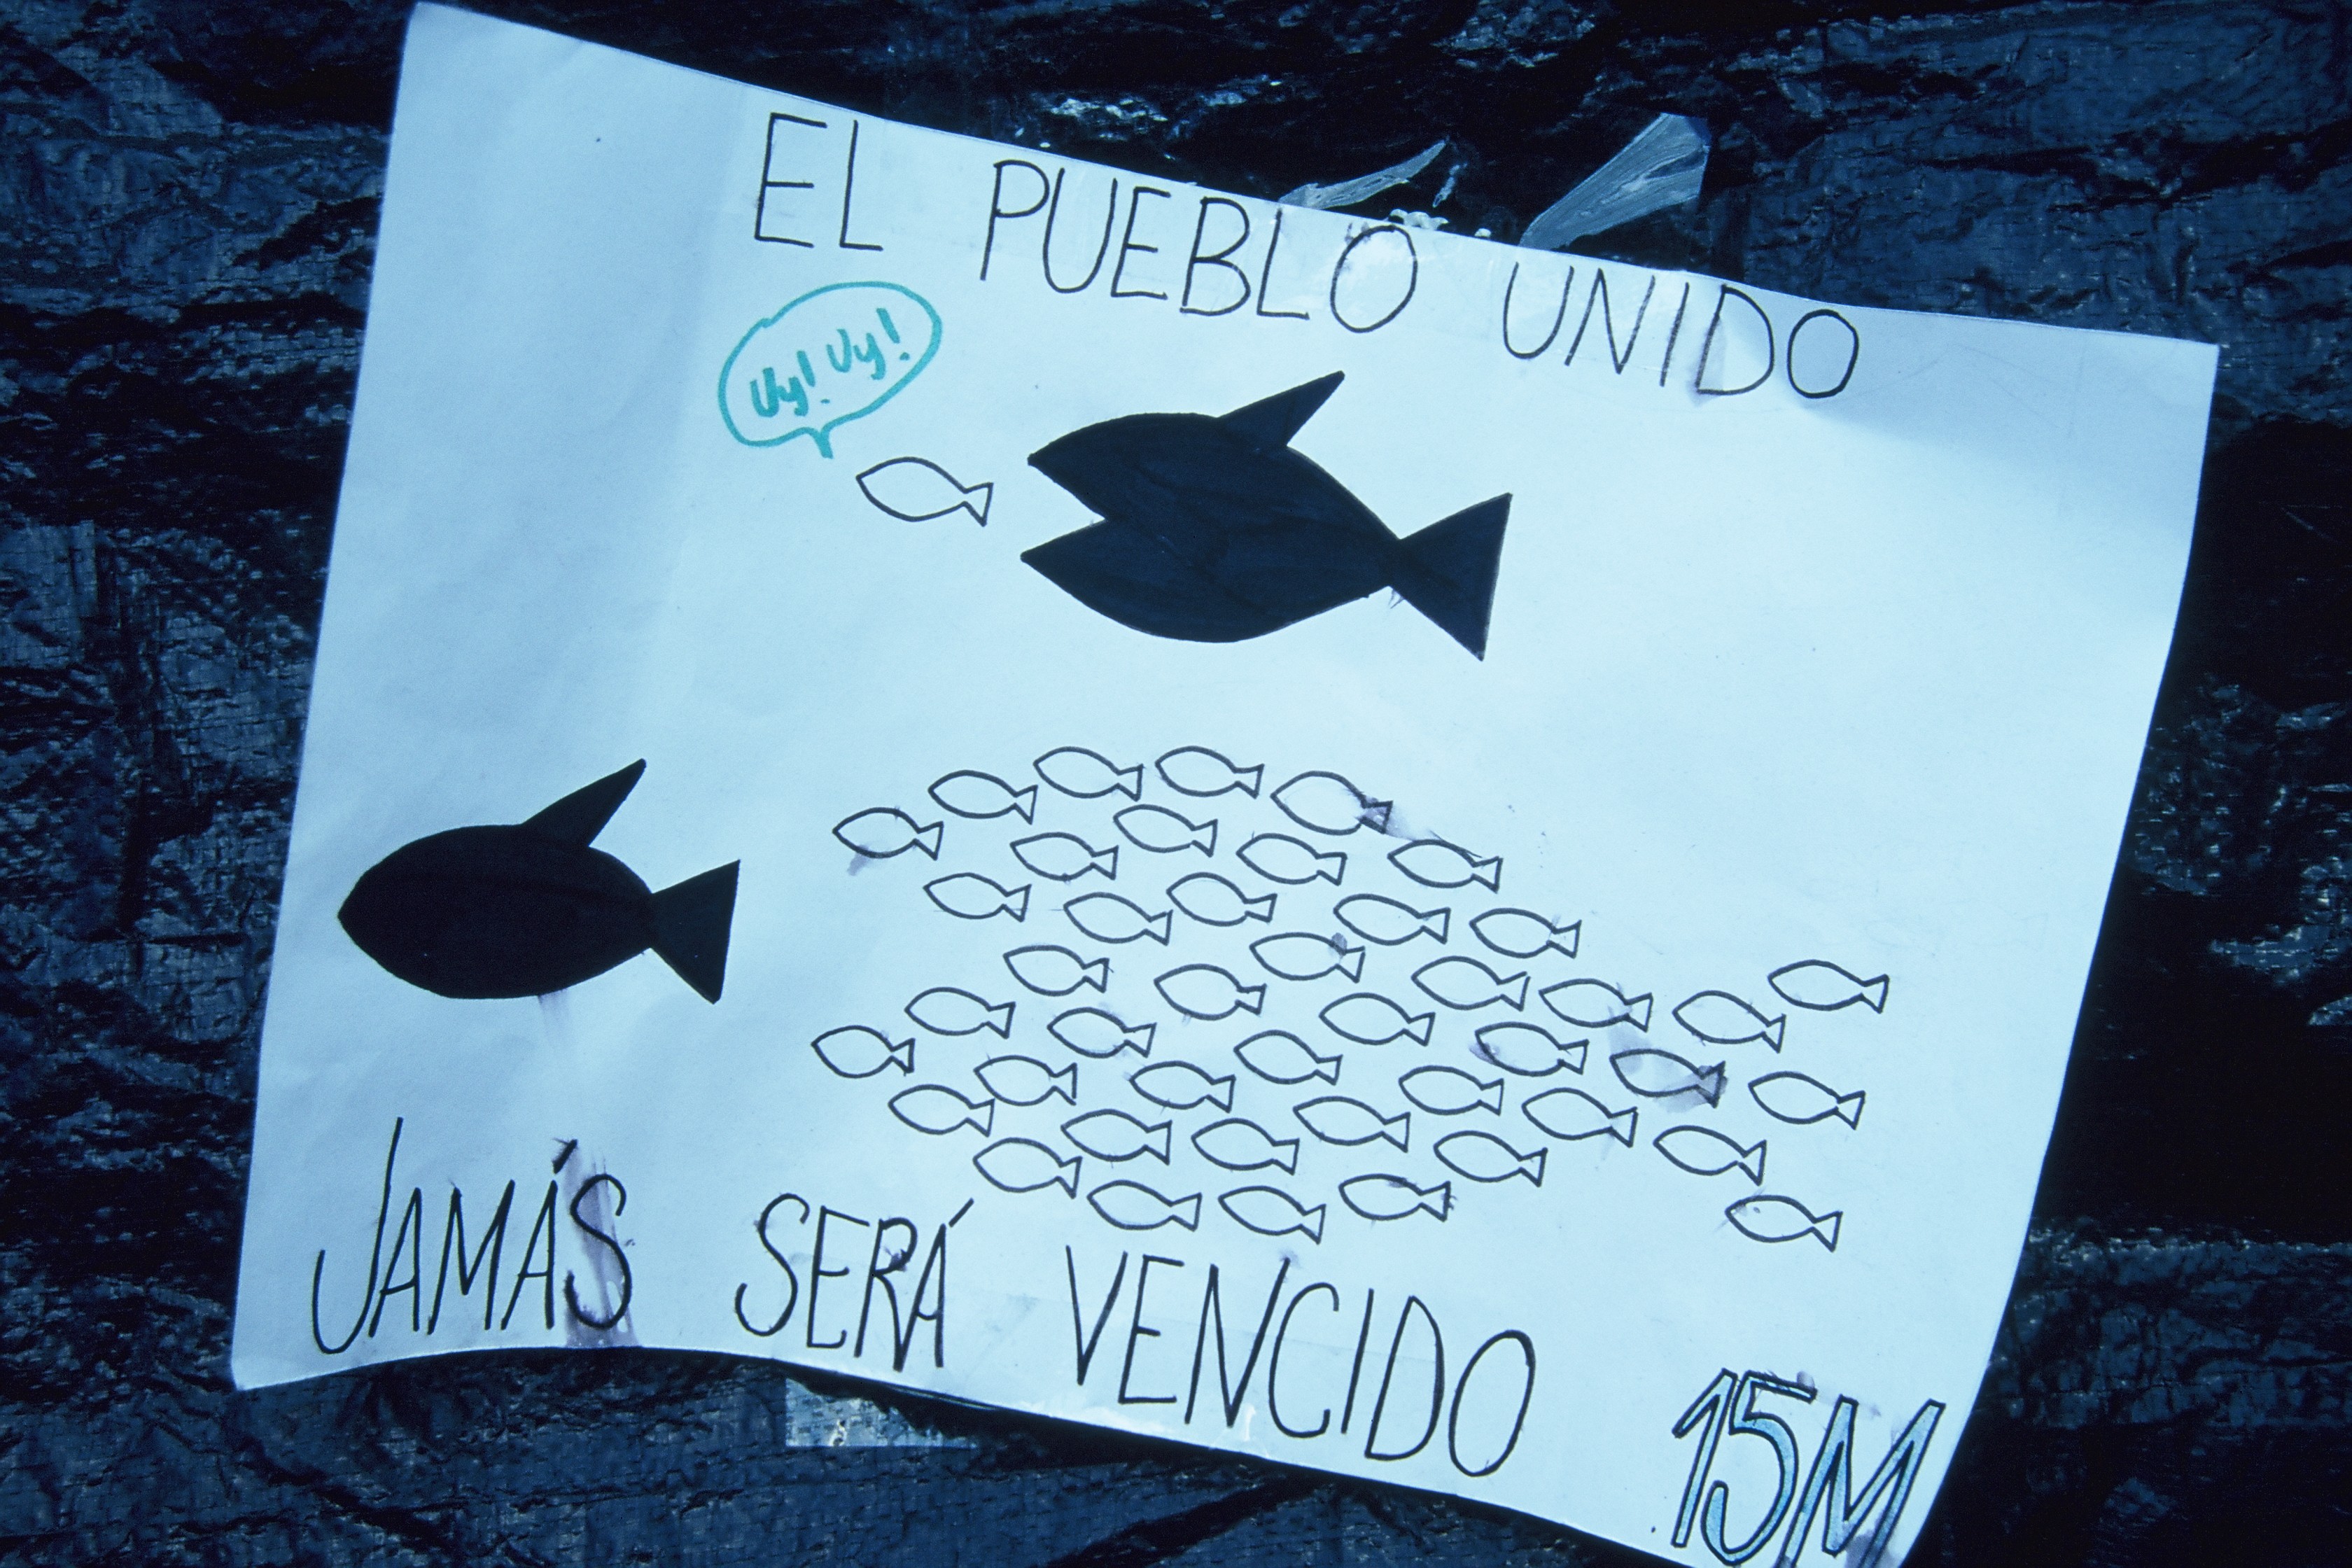 EL PUEBLO UNIDO
Uy! Uy!
JAMÁS SERÁ VENCIDO
15M